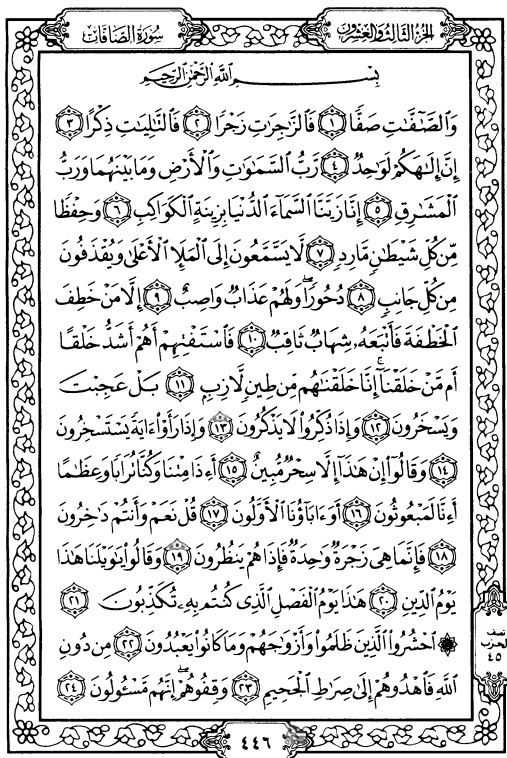 الجزء الثالث والعشرون
سورة الصافات
بِسْمِ اللَّهِ الرَّحْمَٰنِ الرَّحِيمِ
وَالصَّٰٓفَّٰتِ صَفًّا ١ فَالزَّٰجِرَٰتِ زَجْرًا ٢ فَالتَّٰلِيَٰتِ ذِكْرًا ٣
إِنَّ إِلَٰهَكُمْ لَوَٰحِدٌ ٤ رَّبُّ السَّمَٰوَٰتِ وَالْأَرْضِ وَمَا بَيْنَهُمَا وَرَبُّ
الْمَشَٰرِقِ ٥ إِنَّا زَيَّنَّا السَّمَآءَ الدُّنْيَا بِزِينَةٍ الْكَوَاكِبِ ٦ وَحِفْظًا
مِّن كُلِّ شَيْطَٰنٍ مَّارِدٍ ٧ لَّا يَسَّمَّعُونَ إِلَى الْمَلَإِ الْأَعْلَىٰ وَيُقْذَفُونَ
مِن كُلِّ جَانِبٍ ٨ دُحُورًا ۖ وَلَهُمْ عَذَابٌ وَاصِبٌ ٩ إِلَّا مَنْ خَطِفَ
الْخَطْفَةَ فَأَتْبَعَهُۥ شِهَابٌ ثَاقِبٌ ١٠ فَاسْتَفْتِهِمْ أَهُمْ أَشَدُّ خَلْقًا
أَم مَّنْ خَلَقْنَآ ۚ إِنَّا خَلَقْنَٰهُم مِّن طِينٍ لَّازِبٍ ١١ بَلْ عَجِبْتَ
وَيَسْخَرُونَ ١٢ وَإِذَا ذُكِّرُوا لَا يَذْكُرُونَ ١٣ وَإِذَا رَأَوْا ءَايَةً يَسْتَسْخِرُونَ
١٤ وَقَالُوٓا إِنْ هَٰذَآ إِلَّا سِحْرٌ مُّبِينٌ ١٥ أَءِذَا مِتْنَا وَكُنَّا تُرَابًا وَعِظَٰمًا
أَءِنَّا لَمَبْعُوثُونَ ١٦ أَوَءَابَآؤُنَا الْأَوَّلُونَ ١٧ قُلْ نَعَمْ وَأَنتُمْ دَٰخِرُونَ
١٨ فَإِنَّمَا هِيَ زَجْرَةٌ وَٰحِدَةٌ فَإِذَا هُمْ يَنظُرُونَ ١٩ وَقَالُوا يَٰوَيْلَنَا هَٰذَا
يَوْمُ الدِّينِ ٢٠ هَٰذَا يَوْمُ الْفَصْلِ الَّذِي كُنتُم بِهِۦ تُكَذِّبُونَ ٢١
۞ احْشُرُوا الَّذِينَ ظَلَمُوا وَأَزْوَٰجَهُمْ وَمَا كَانُوا يَعْبُدُونَ ٢٢ مِن دُونِ
اللَّهِ فَاهْدُوهُمْ إِلَىٰ صِرَٰطِ الْجَحِيمِ ٢٣ وَقِفُوهُمْ ۖ إِنَّهُم مَّسْـُٔولُونَ ٢٤
نصف
الحزب
٤٥
٤٤٦